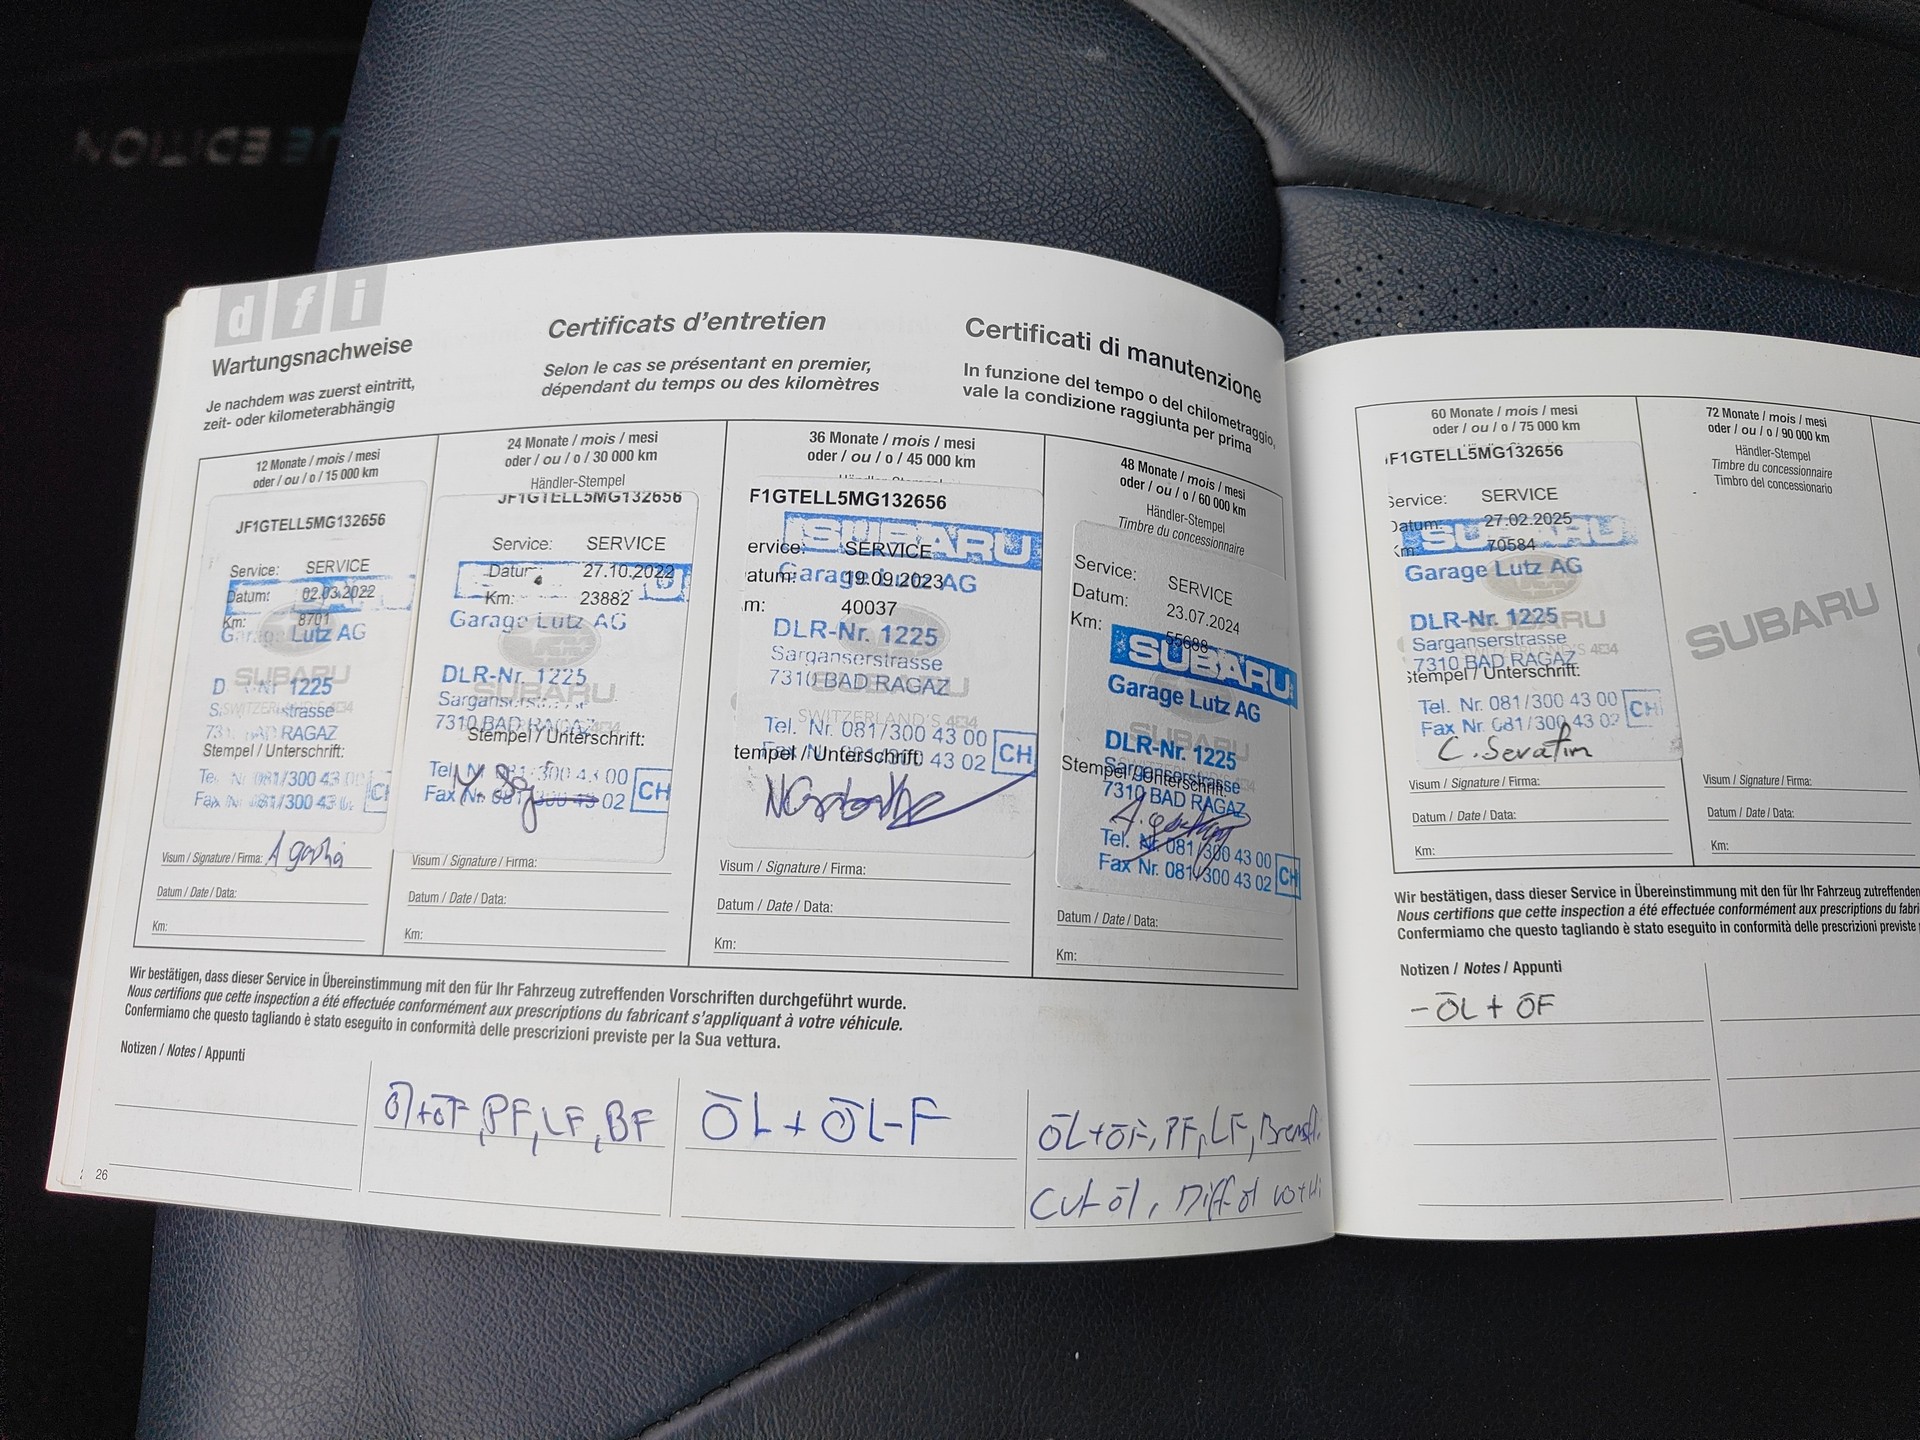 d f i
Wartungsnachweise
Je nachdem was zuerst eintritt,
zeit- oder kilometerabhängig
Certificats d'entretien
Selon le cas se présentant en premier,
dépendant du temps ou des kilomètres
Certificati di manutenzione
In funzione del tempo o del chilometraggio,
vale la condizione raggiunta per prima
12 Monate / mois / mesi
oder / ou / o / 15 000 km
JF1GTELL5MG132656
Service: SERVICE
Datum: 02.03.2022
Km: 8701
Garage Lutz AG
SUBARU
DLR-Nr. 1225
Sarganserstrasse
SWITZERLAND'S 4x4
7310 BAD RAGAZ
Stempel / Unterschrift:
Tel. Nr. 081/300 43 00
Fax Nr. 081/300 43 02 CH
Visum / Signature / Firma:
Datum / Date / Data:
Km:
24 Monate / mois / mesi
oder / ou / o / 30 000 km
Händler-Stempel
JF1GTELL5MG132656
Service: SERVICE
Datum: 27.10.2022
Km: 23882
Garage Lutz AG
DLR-Nr. 1225
SUBARU
Sarganserstrasse
7310 BAD RAGAZ
Stempel / Unterschrift:
Tel. Nr. 081/300 43 00
Fax Nr. 081/300 43 02 CH
Visum / Signature / Firma:
Datum / Date / Data:
Km:
36 Monate / mois / mesi
oder / ou / o / 45 000 km
Händler-Stempel
F1GTELL5MG132656
SUBARU
ervice: SERVICE
atum: 19.09.2023
Garage Lutz AG
m: 40037
DLR-Nr. 1225
Sarganserstrasse
7310 BAD RAGAZ
SUBARU
SWITZERLAND'S 4x4
Tel. Nr. 081/300 43 00
tempel / Unterschrift:
Fax Nr. 081/300 43 02 CH
Visum / Signature / Firma:
Datum / Date / Data:
Km:
48 Monate / mois / mesi
oder / ou / o / 60 000 km
Händler-Stempel
Timbre du concessionnaire
Service: SERVICE
Datum: 23.07.2024
Km: 55688
SUBARU
Garage Lutz AG
DLR-Nr. 1225
Sarganserstrasse
Stempel / Unterschrift:
7310 BAD RAGAZ
Tel. Nr. 081/300 43 00
Fax Nr. 081/300 43 02 CH
Datum / Date / Data:
Km:
Wir bestätigen, dass dieser Service in Übereinstimmung mit den für Ihr Fahrzeug zutreffenden Vorschriften durchgeführt wurde.
Nous certifions que cette inspection a été effectuée conformément aux prescriptions du fabricant s'appliquant à votre véhicule.
Confermiamo che questo tagliando è stato eseguito in conformità delle prescrizioni previste per la Sua vettura.
Notizen / Notes / Appunti
Öl+ÖF, PF, LF, BF
ÖL + ÖL-F
ÖL+ÖF, PF, LF, Bremsfl.
Cvt öl, Diff öl
26
60 Monate / mois / mesi
oder / ou / o / 75 000 km
F1GTELL5MG132656
Service: SERVICE
Datum: 27.02.2025
SUBARU
Km: 70584
Garage Lutz AG
DLR-Nr. 1225
Sarganserstrasse
7310 BAD RAGAZ
Stempel / Unterschrift:
Tel. Nr. 081/300 43 00
Fax Nr. 081/300 43 02 CH
C. Serafin
Visum / Signature / Firma:
Datum / Date / Data:
Km:
72 Monate / mois / mesi
oder / ou / o / 90 000 km
Händler-Stempel
Timbre du concessionnaire
Timbro del concessionario
SUBARU
Visum / Signature / Firma:
Datum / Date / Data:
Km:
Wir bestätigen, dass dieser Service in Übereinstimmung mit den für Ihr Fahrzeug zutreffenden
Nous certifions que cette inspection a été effectuée conformément aux prescriptions du fabri
Confermiamo che questo tagliando è stato eseguito in conformità delle prescrizioni previste
Notizen / Notes / Appunti
- ÖL + ÖF